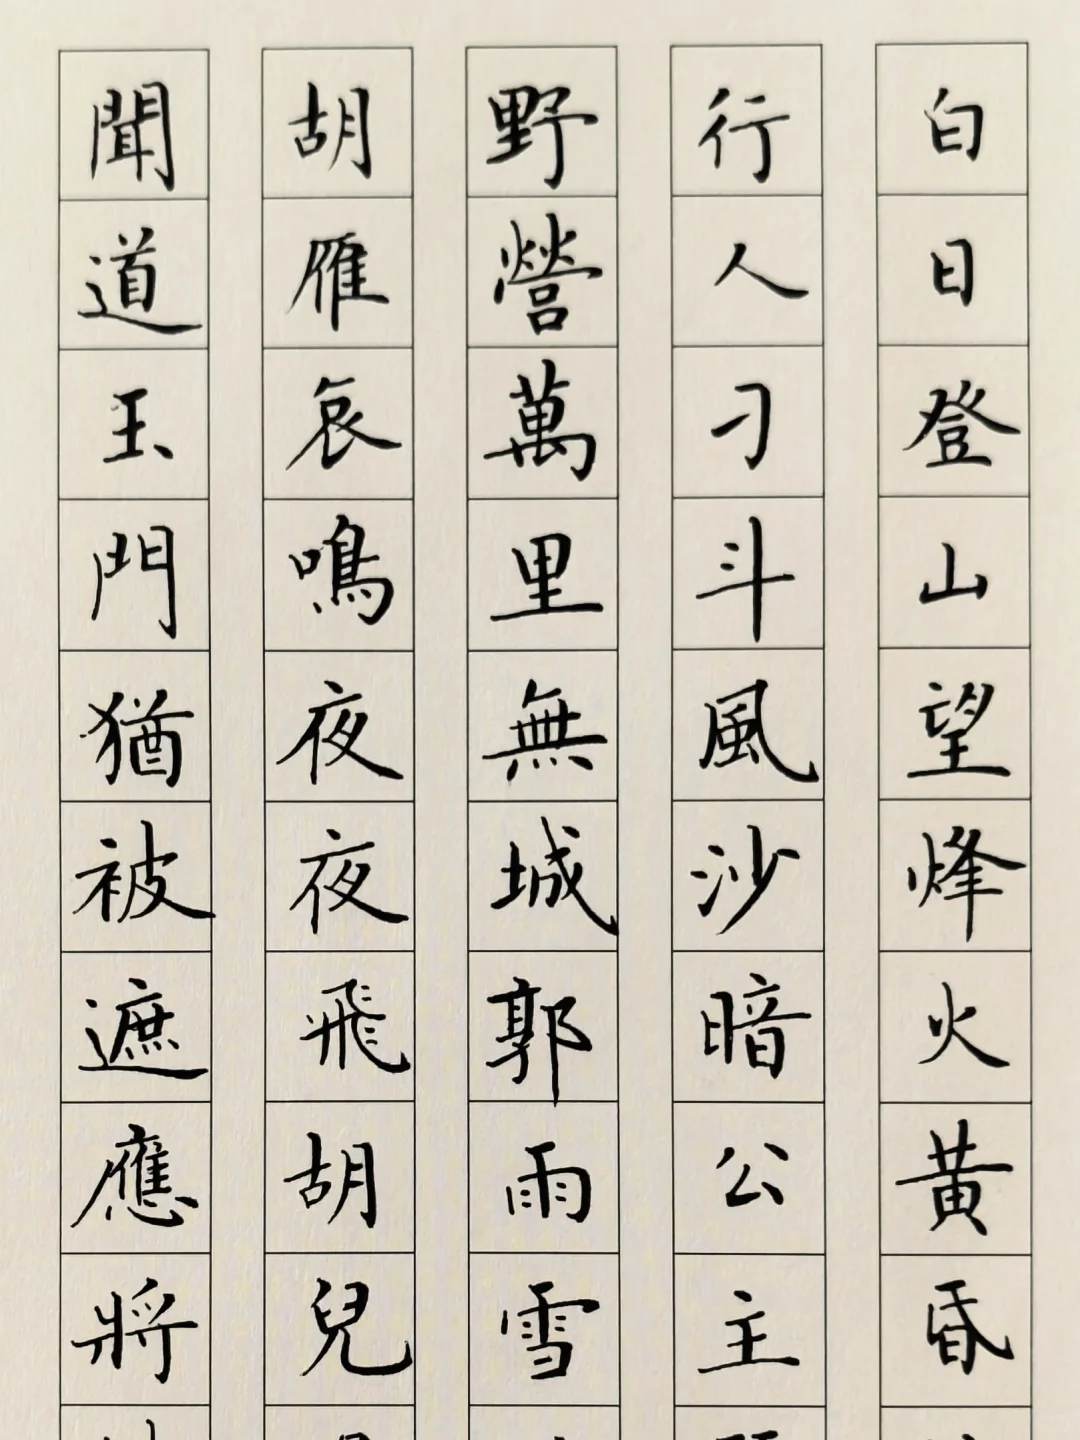 白日登山望烽火黃昏
行人刁斗風沙暗公主
野營萬里無城郭雨雪
胡雁哀鳴夜夜飛胡兒
聞道玉門猶被遮應將